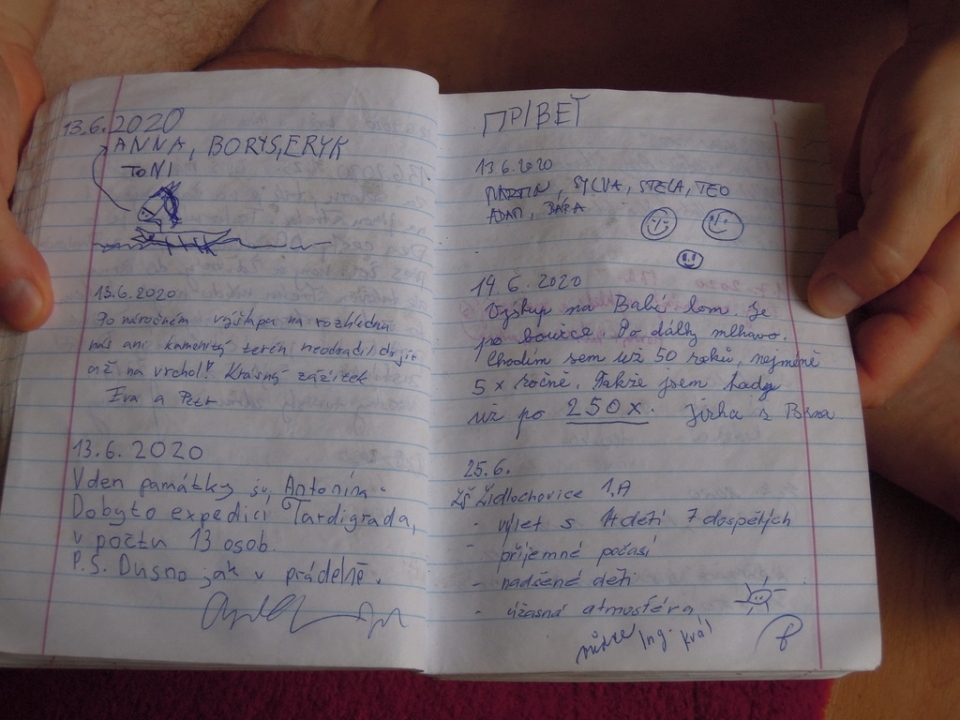 13.6.2020
ANNA, BORYS, ERYK
TONI
13.6.2020
Po náročném výšlapu na rozhlednu
nás ani kamenitý terén neodradil dojít
až na vrchol! Krásný zážitek
Eva a Petr
13.6.2020
V den památky sv. Antonína.
Dobyto expedicí Tardigrada,
v počtu 13 osob.
P.S. Dusno jak v prádelně.
ПРІВЕТ
13.6.2020
MARTIN, SYLVA, STELA, TEO
ADAM, BÁRA
14.6.2020
Výstup na Babí lom. Je
po bouřce. Do dálky mlhavo.
Chodím sem už 50 roků, nejméně
5 x ročně. Takže jsem tady
už po 250x. Jirka z Brna
25.6.
ZŠ Židlochovice 1.A
- výlet s 14 dětí 7 dospělých
- příjemné počasí
- nadšené děti
- úžasná atmosféra
Ing. Král